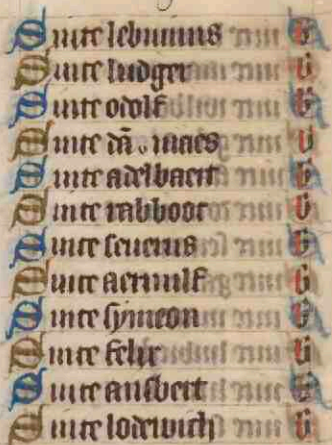 Sinte lebuinus b
Sinte ludger b
Sinte odolf b
Sinte dā maes b
Sinte adelbaert b
Sinte rabbodt b
Sinte seuerus b
Sinte aernulf b
Sinte symeon b
Sinte felix b
Sinte ansbert b
Sinte lodewich b